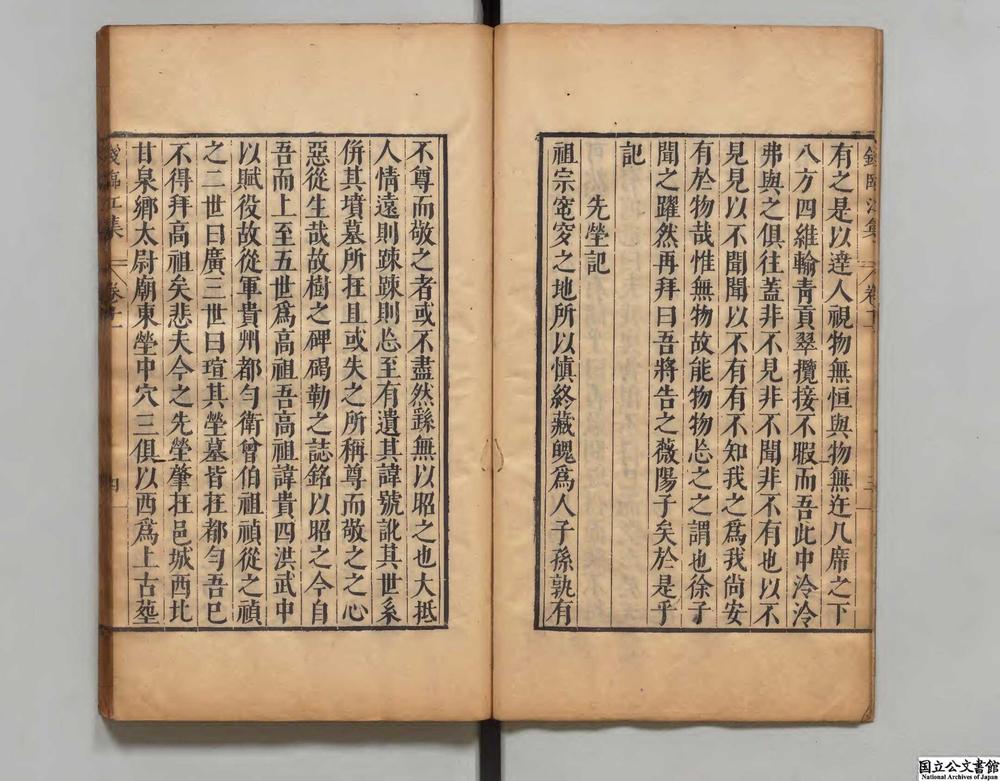 有之是以達人視物無恒與物無迕几席之下
八方四維輸青貢翠攬接不暇而吾此中泠泠
弗與之俱往蓋非不見非不聞非不有也以不
見見以不聞聞以不有有不知我之爲我尚安
有於物哉惟無物故能物物忘之之謂也徐子
聞之躍然再拜曰吾將告之薇陽子矣於是乎
記
先塋記
祖宗窀穸之地所以慎終藏魄爲人子孫孰有
不尊而敬之者或不盡然繇無以昭之也大抵
人情遠則踈踈則忘至有遺其諱號訛其世系
併其墳墓所在且或失之所稱尊而敬之之心
惡從生哉故樹之碑碣勒之誌銘以昭之今自
吾而上至五世爲高祖吾高祖諱貴四洪武中
以賦役故從軍貴州都勻衛曾伯祖禎從之禎
之二世曰廣三世曰瑄其塋墓皆在都勻吾巳
不得拜高祖矣悲夫今之先塋肇在邑城西北
甘泉鄉太尉廟東塋中穴三俱以西爲上古塟
錢臨江集 卷十一 四
国立公文書館
National Archives of Japan